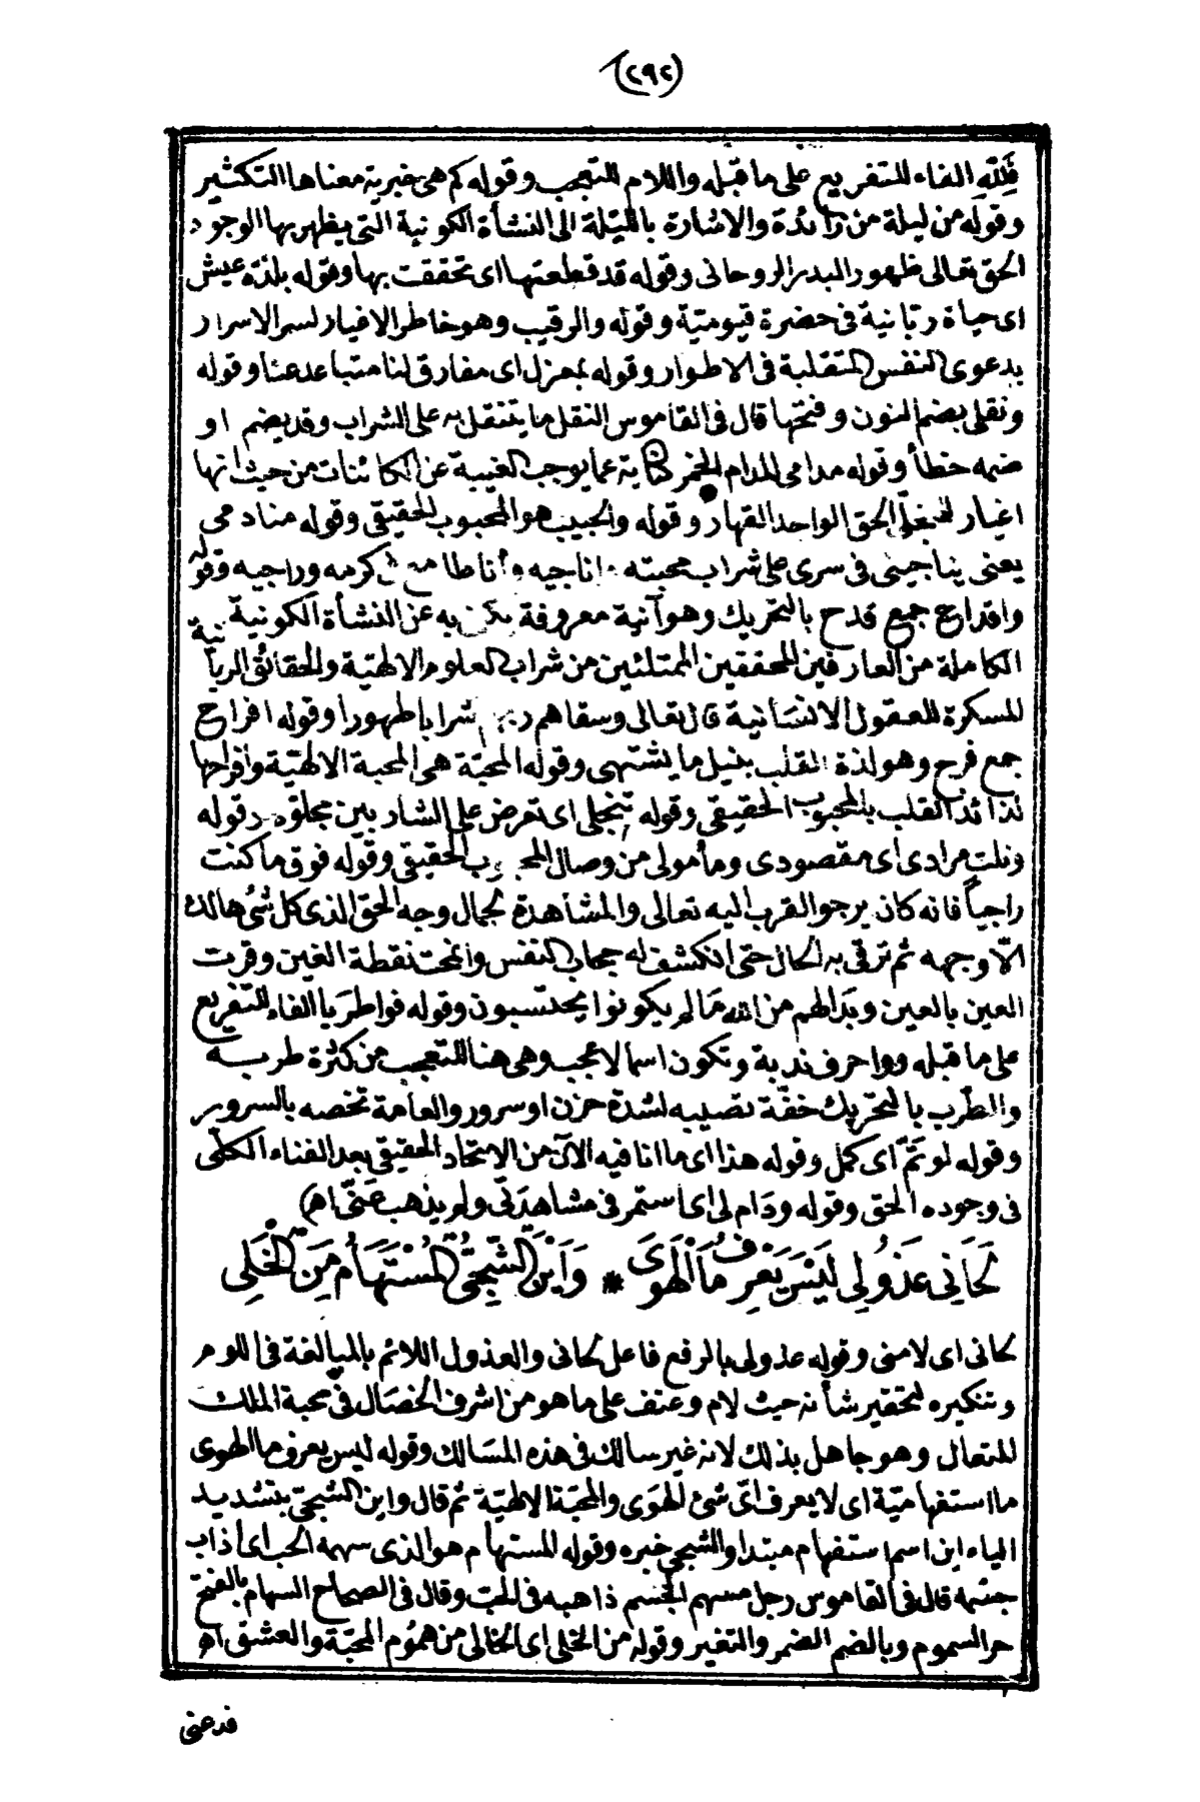 (٢٩٢)
فلله الفاء للتفريع على ما قبله واللام للتعجب وقوله كم هى خبرية معناها التكثير
وقوله من ليلة من زائدة والاشارة بالليلة الى النشأة الكونية التى يظهر بها الوجود
الحق تعالى ظهور البدر الروحانى وقوله قد قطعتها اى تحققت بها وقوله بلذة عيش
اى حياة ربانية فى حضرة قيومية وقوله والرقيب وهو خاطر الاغيار لسر الاسرار
بدعوى النفس المتقلبة فى الاطوار وقوله بمعزل اى مفارق لنا متباعد عنا وقوله
ونقلى بضم النون وفتحها قال فى القاموس النقل ما يتنقل به على الشراب وقد يضم او
ضمه خطأ وقوله مدامى المدام الخمر كناية عما يوجب الغيبة عن الكائنات من حيث انها
اغيار الحق الواحد القهار وقوله والحبيب هو المحبوب الحقيقى وقوله منادمى
يعنى يناجينى فى سرى على شراب محبته اناجيه وأنا طامع كرمه وراجيه وقوله
واقداح جمع قدح بالتحريك وهو آنية معروفة يكنى به عن النشأة الكونية
الكاملة من العارفين المحققين الممتلئين من شراب العلوم الالهية والحقائق الربانية
المسكرة للعقول الانسانية قال تعالى وسقاهم ربهم شرابا طهورا وقوله افراح
جمع فرح وهو لذة القلب بنيل ما يشتهى وقوله المحبة هى المحبة الالهية وافراحها
لذائذ القلب بالمحبوب الحقيقى وقوله تنجلى اى تعرض على الشاربين مجلوة وقوله
ونلت مرادى اى مقصودى ومأمولى من وصال المحبوب الحقيقى وقوله فوق ما كنت
راجيا فانه كان يرجو القرب اليه تعالى والمشاهدة لجمال وجه الحق الذى كل شئ هالك
الا وجهه ثم ترقى به الحال حتى انكشف له حجاب النفس وانمحت نقطة الغين وقرت
العين بالعين وبدا لهم من الله ما لم يكونوا يحتسبون وقوله فواطربا الفاء للتفريع
على ما قبله ووا حرف ندبة وتكون اسما لاعجب وهى هنا للتعجب من كثرة طربه
والطرب بالتحريك خفة تصيبه لشدة حزن او سرور والعامة تخصه بالسرور
وقوله لو تم اى كمل وقوله هذا اى ما انا فيه الآن من الاتحاد الحقيقى بعد الفناء الكلى
فى وجوده الحق وقوله ودام لى اى استمر فى مشاهدتى ولم يذهب عنى اه)
لَحَانِى عَذُولِى لَيْسَ يَعْرِفُ مَا الْهَوَى * وَاَيْنَ الشَّجِىُّ الْمُسْتَهَامُ مِنَ الْخَلِى
لحانى اى لامنى وقوله عذولى بالرفع فاعل لحانى والعذول اللائم بالمبالغة فى اللوم
وتنكيره لتحقير شأنه حيث لام وعنف على ما هو من اشرف الخصال فى محبة الملك
المتعال وهو جاهل بذلك لانه غير سالك فى هذه المسالك وقوله ليس يعرف ما الهوى
ما استفهامية اى لا يعرف اى شئ الهوى والمحبة الالهية ثم قال واين الشجى بتشديد
الياء اين اسم استفهام مبتدا والشجى خبره وقوله المستهام هو الذى سهمه الحب اى اذاب
جسمه قال فى القاموس رجل مسهم الجسم ذاهبه فى الحب وقال فى الصحاح السهام بالفتح
حر السموم وبالضم الضمر والتغير وقوله من الخلى اى الخالى من هموم المحبة والعشق اه
فدعنى